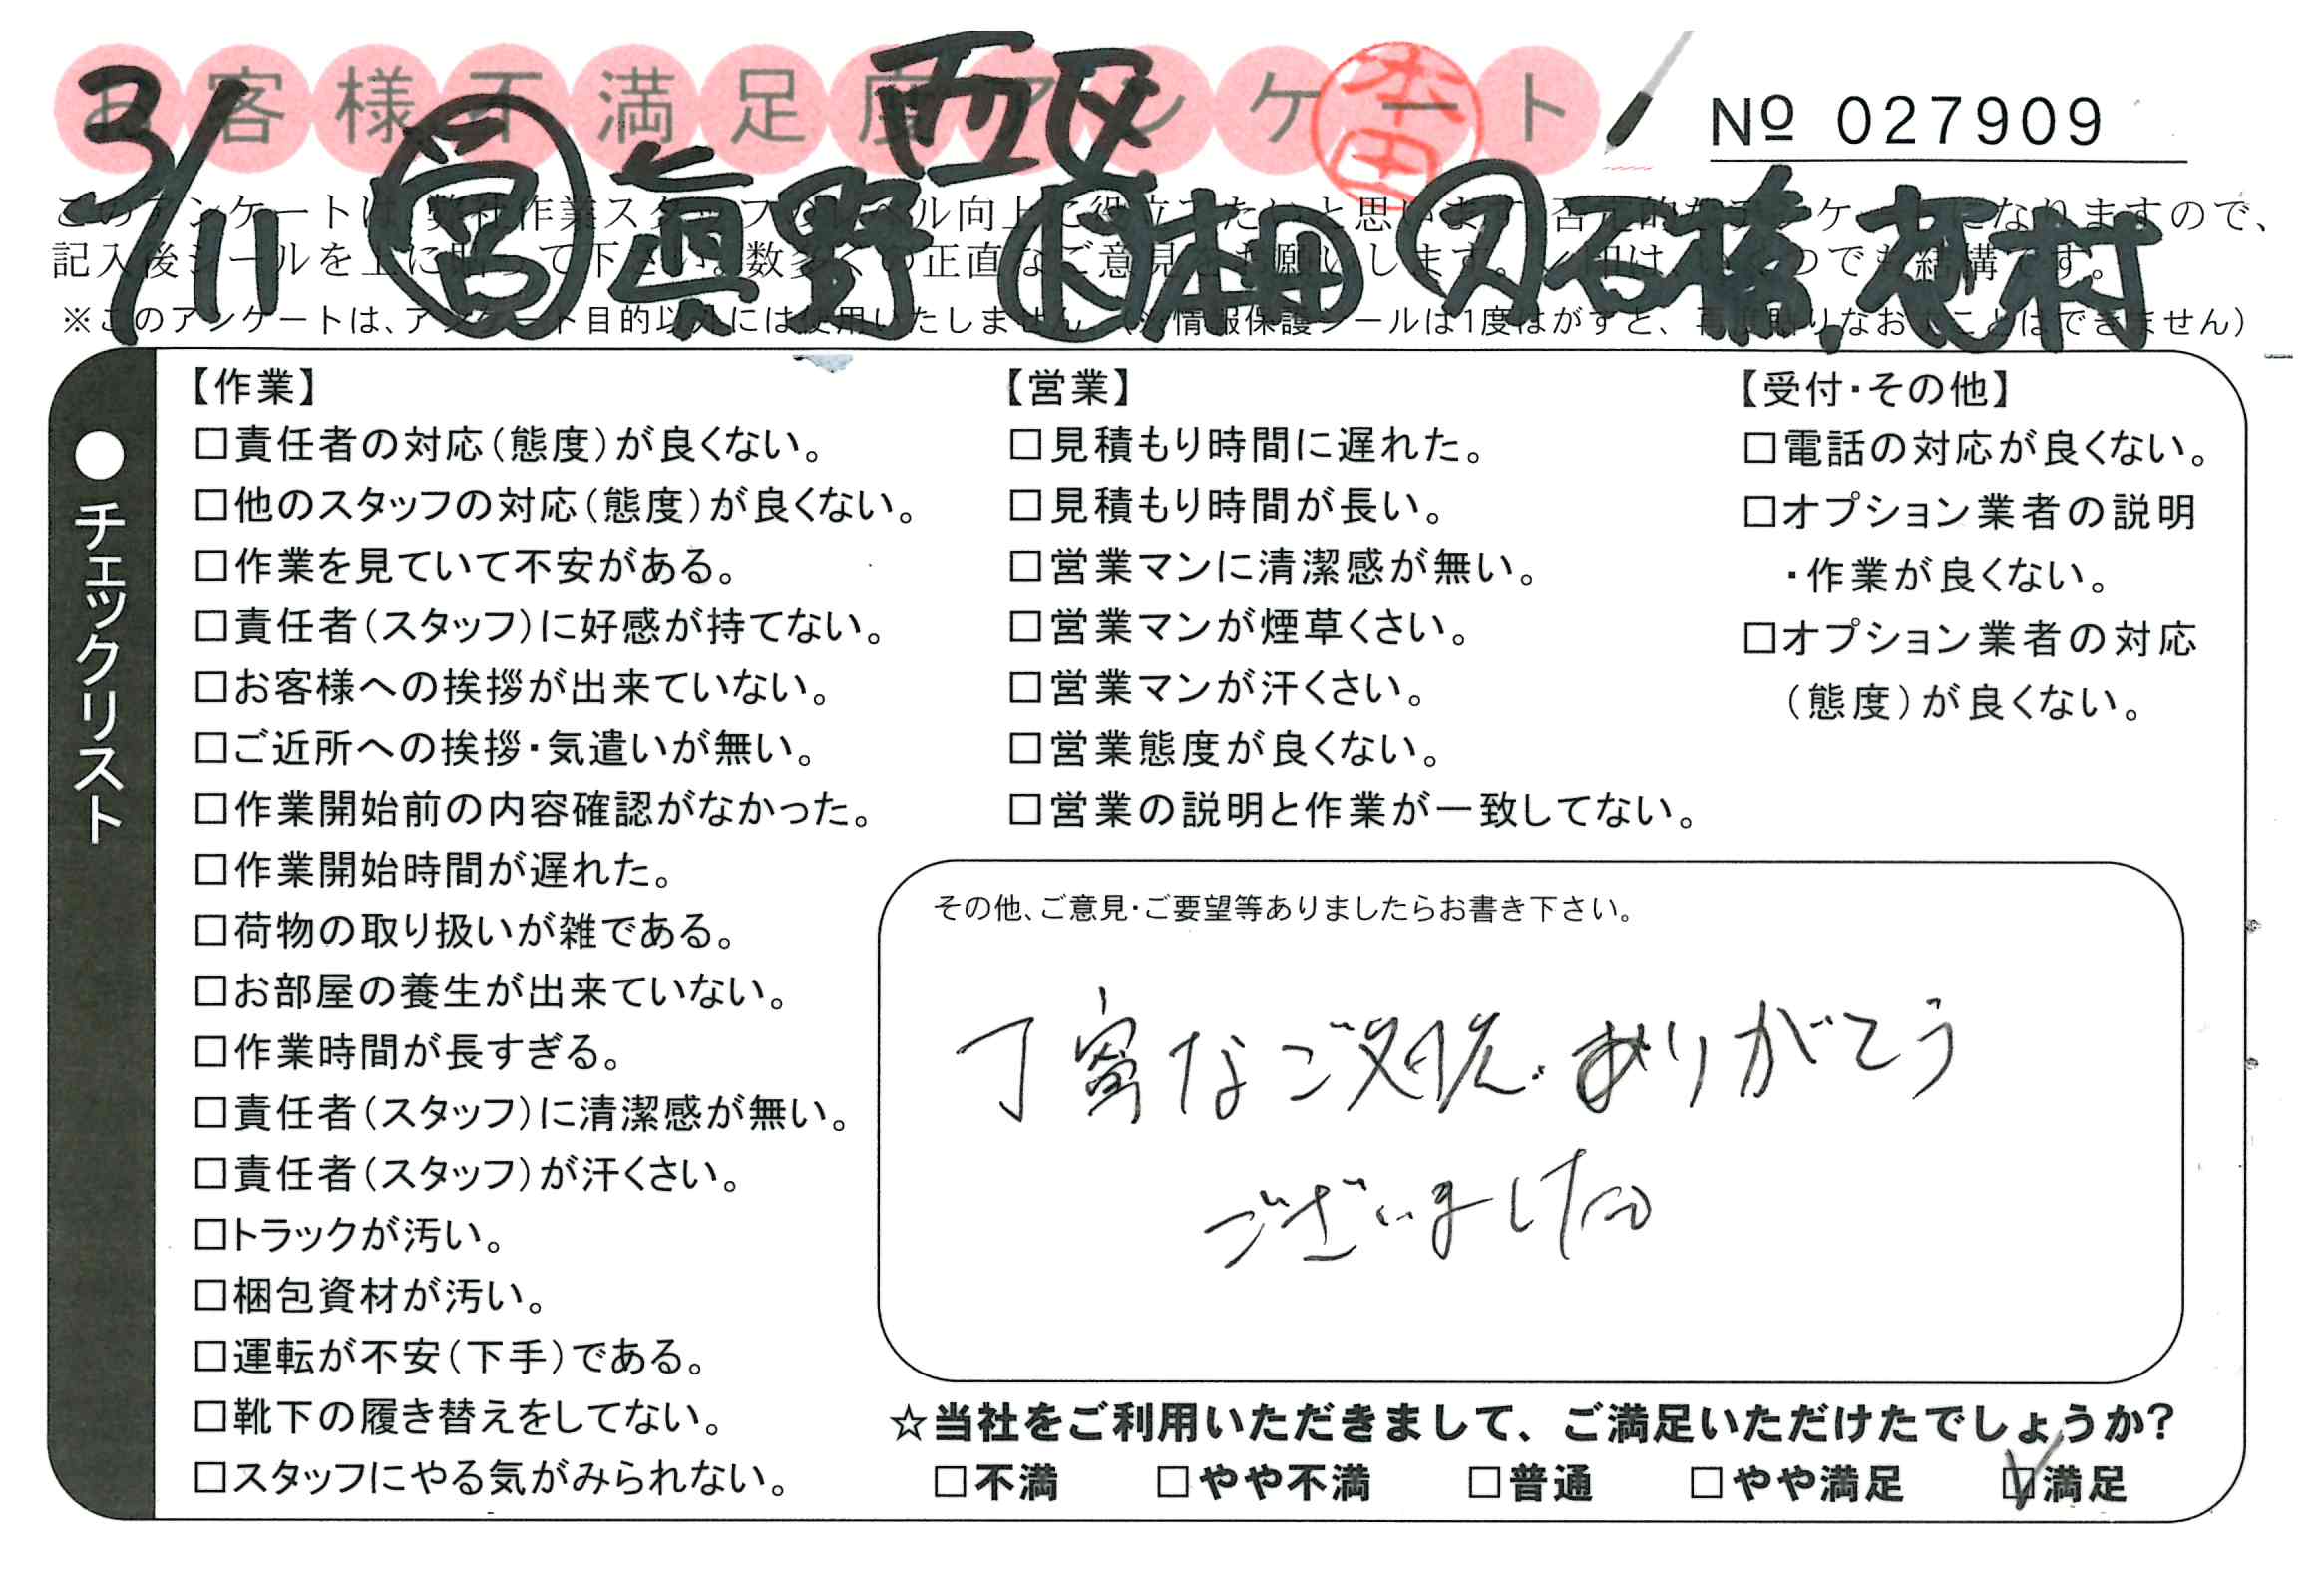 お客様不満足度アンケート
西区
本田
№ 027909
3/11 営 眞野 石橋、花村
このアンケートは、弊社作業スタッフのレベル向上に役立てたいと思います。否定的なアンケートになりますので、
記入後シールを上に貼って下さい。数多くの正直なご意見をお願いします。レ印は、いくつでも結構です。
※このアンケートは、アンケート目的以外には使用いたしません。(※情報保護シールは1度はがすと、再度貼りなおすことはできません)
●チェックリスト
【作業】
□責任者の対応(態度)が良くない。
□他のスタッフの対応(態度)が良くない。
□作業を見ていて不安がある。
□責任者(スタッフ)に好感が持てない。
□お客様への挨拶が出来ていない。
□ご近所への挨拶・気遣いが無い。
□作業開始前の内容確認がなかった。
□作業開始時間が遅れた。
□荷物の取り扱いが雑である。
□お部屋の養生が出来ていない。
□作業時間が長すぎる。
□責任者(スタッフ)に清潔感が無い。
□責任者(スタッフ)が汗くさい。
□トラックが汚い。
□梱包資材が汚い。
□運転が不安(下手)である。
□靴下の履き替えをしてない。
□スタッフにやる気がみられない。
【営業】
□見積もり時間に遅れた。
□見積もり時間が長い。
□営業マンに清潔感が無い。
□営業マンが煙草くさい。
□営業マンが汗くさい。
□営業態度が良くない。
□営業の説明と作業が一致してない。
【受付・その他】
□電話の対応が良くない。
□オプション業者の説明
・作業が良くない。
□オプション業者の対応
(態度)が良くない。
その他、ご意見・ご要望等ありましたらお書き下さい。
丁寧なご対応、ありがとう
ございました
☆当社をご利用いただきまして、ご満足いただけたでしょうか?
□不満 □やや不満 □普通 □やや満足 ☑満足